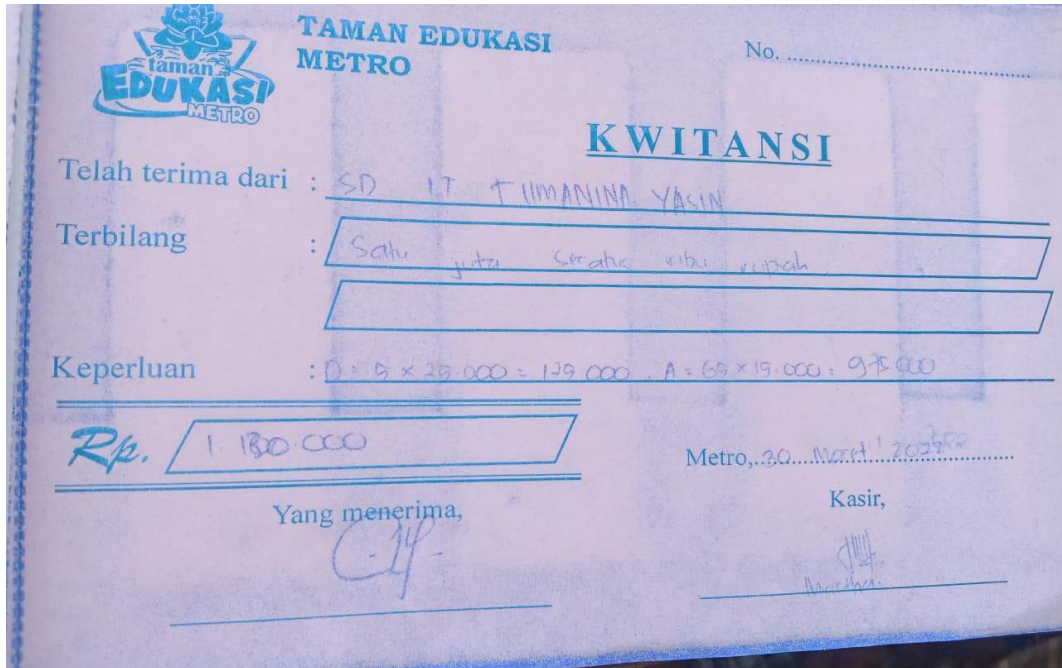 taman
EDUKASI
METRO
TAMAN EDUKASI
METRO
No.
KWITANSI
Telah terima dari : SD IT TUMANINA YASIN
Terbilang : Satu juta seratus ribu rupiah
Keperluan : D = 5 × 25.000 = 125.000 A = 65 × 15.000 = 975.000
Rp. 1.100.000
Metro, 30 Maret
Yang menerima,
Kasir,
Mardha